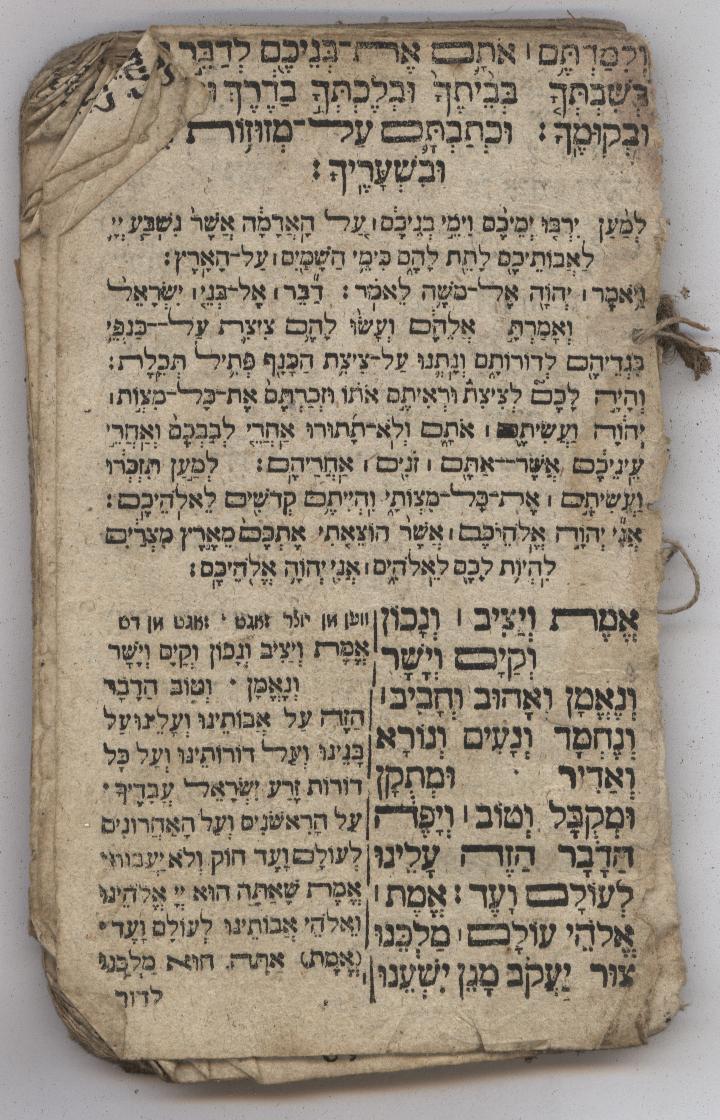 וְלִמַּדְתֶּם׀ אֹתָם אֶת־בְּנֵיכֶם לְדַבֵּר
בְּשִׁבְתְּךָ בְּבֵיתֶךָ וּבְלֶכְתְּךָ בַדֶּרֶךְ
וּבְקוּמֶךָ׃ וּכְתַבְתָּם עַל־מְזוּזוֹת
וּבִשְׁעָרֶיךָ׃
לְמַעַן יִרְבּוּ יְמֵיכֶם וִימֵי בְנֵיכֶם׀ עַל הָאֲדָמָה אֲשֶׁר נִשְׁבַּע יְיָ
לַאֲבוֹתֵיכֶם לָתֵת לָהֶם כִּימֵי הַשָּׁמַיִם׀ עַל־הָאָרֶץ׃
וַיֹּאמֶר׀ יְהוָֹה אֶל־מֹשֶׁה לֵּאמֹר׃ דַּבֵּר׀ אֶל־בְּנֵי׀ יִשְׂרָאֵל
וְאָמַרְתָּ אֲלֵהֶם וְעָשׂוּ לָהֶם צִיצִת עַל־כַּנְפֵי
בִגְדֵיהֶם לְדוֹרוֹתָם וְנָתְנוּ עַל־צִיצִת הַכָּנָף פְּתִיל תְּכֵלֶת׃
וְהָיָה לָכֶם לְצִיצִת וּרְאִיתֶם אֹתוֹ וּזְכַרְתֶּם אֶת־כָּל־מִצְוֹת׀
יְהוָֹה וַעֲשִׂיתֶם׀ אֹתָם וְלֹא־תָתוּרוּ אַחֲרֵי לְבַבְכֶם וְאַחֲרֵי
עֵינֵיכֶם אֲשֶׁר־אַתֶּם׀ זֹנִים׀ אַחֲרֵיהֶם׃ לְמַעַן תִּזְכְּרוּ
וַעֲשִׂיתֶם׀ אֶת־כָּל־מִצְוֹתָי וִהְיִיתֶם קְדֹשִׁים לֵאלֹהֵיכֶם׃
אֲנִי יְהוָֹה אֱלֹהֵיכֶם׀ אֲשֶׁר הוֹצֵאתִי אֶתְכֶם מֵאֶרֶץ מִצְרַיִם
לִהְיוֹת לָכֶם לֵאלֹהִים׀ אֲנִי יְהוָֹה אֱלֹהֵיכֶם׃
אֱמֶת וְיַצִּיב׀ וְנָכוֹן
וְקַיָּם וְיָשָׁר
וְנֶאֱמָן וְאָהוּב וְחָבִיב׀
וְנֶחְמָד וְנָעִים וְנוֹרָא
וְאַדִּיר וּמְתֻקָּן
וּמְקֻבָּל וְטוֹב׀ וְיָפֶה
הַדָּבָר הַזֶּה עָלֵינוּ
לְעוֹלָם וָעֶד׃ אֱמֶת׀
אֱלֹהֵי עוֹלָם׀ מַלְכֵּנוּ
צוּר יַעֲקֹב מָגֵן יִשְׁעֵנוּ
ווען מן יוצר זאגט׳ זאגט מן דס
אֱמֶת וְיַצִּיב וְנָכוֹן וְקַיָּם וְיָשָׁר
וְנֶאֱמָן׳ וְטוֹב הַדָבָר
הַזֶּה עַל אֲבוֹתֵינוּ וְעָלֵינוּ עַל
בָּנֵינוּ וְעַל דּוֹרוֹתֵינוּ וְעַל כָּל
דּוֹרוֹת זֶרַע יִשְׂרָאֵל עֲבָדֶיךָ׳
עַל הָרִאשֹׁנִים וְעַל הָאַחֲרוֹנִים
לְעוֹלָם וָעֶד חוֹק וְלֹא יַעֲבוֹר׳
אֱמֶת שָׁאַתָּה הוּא יְיָ אֱלֹהֵינוּ
וֵאלֹהֵי אֲבוֹתֵינוּ לְעוֹלָם וָעֶד׳
(אֱמֶת) אַתָּה הוּא מַלְכֵּנוּ
לדור